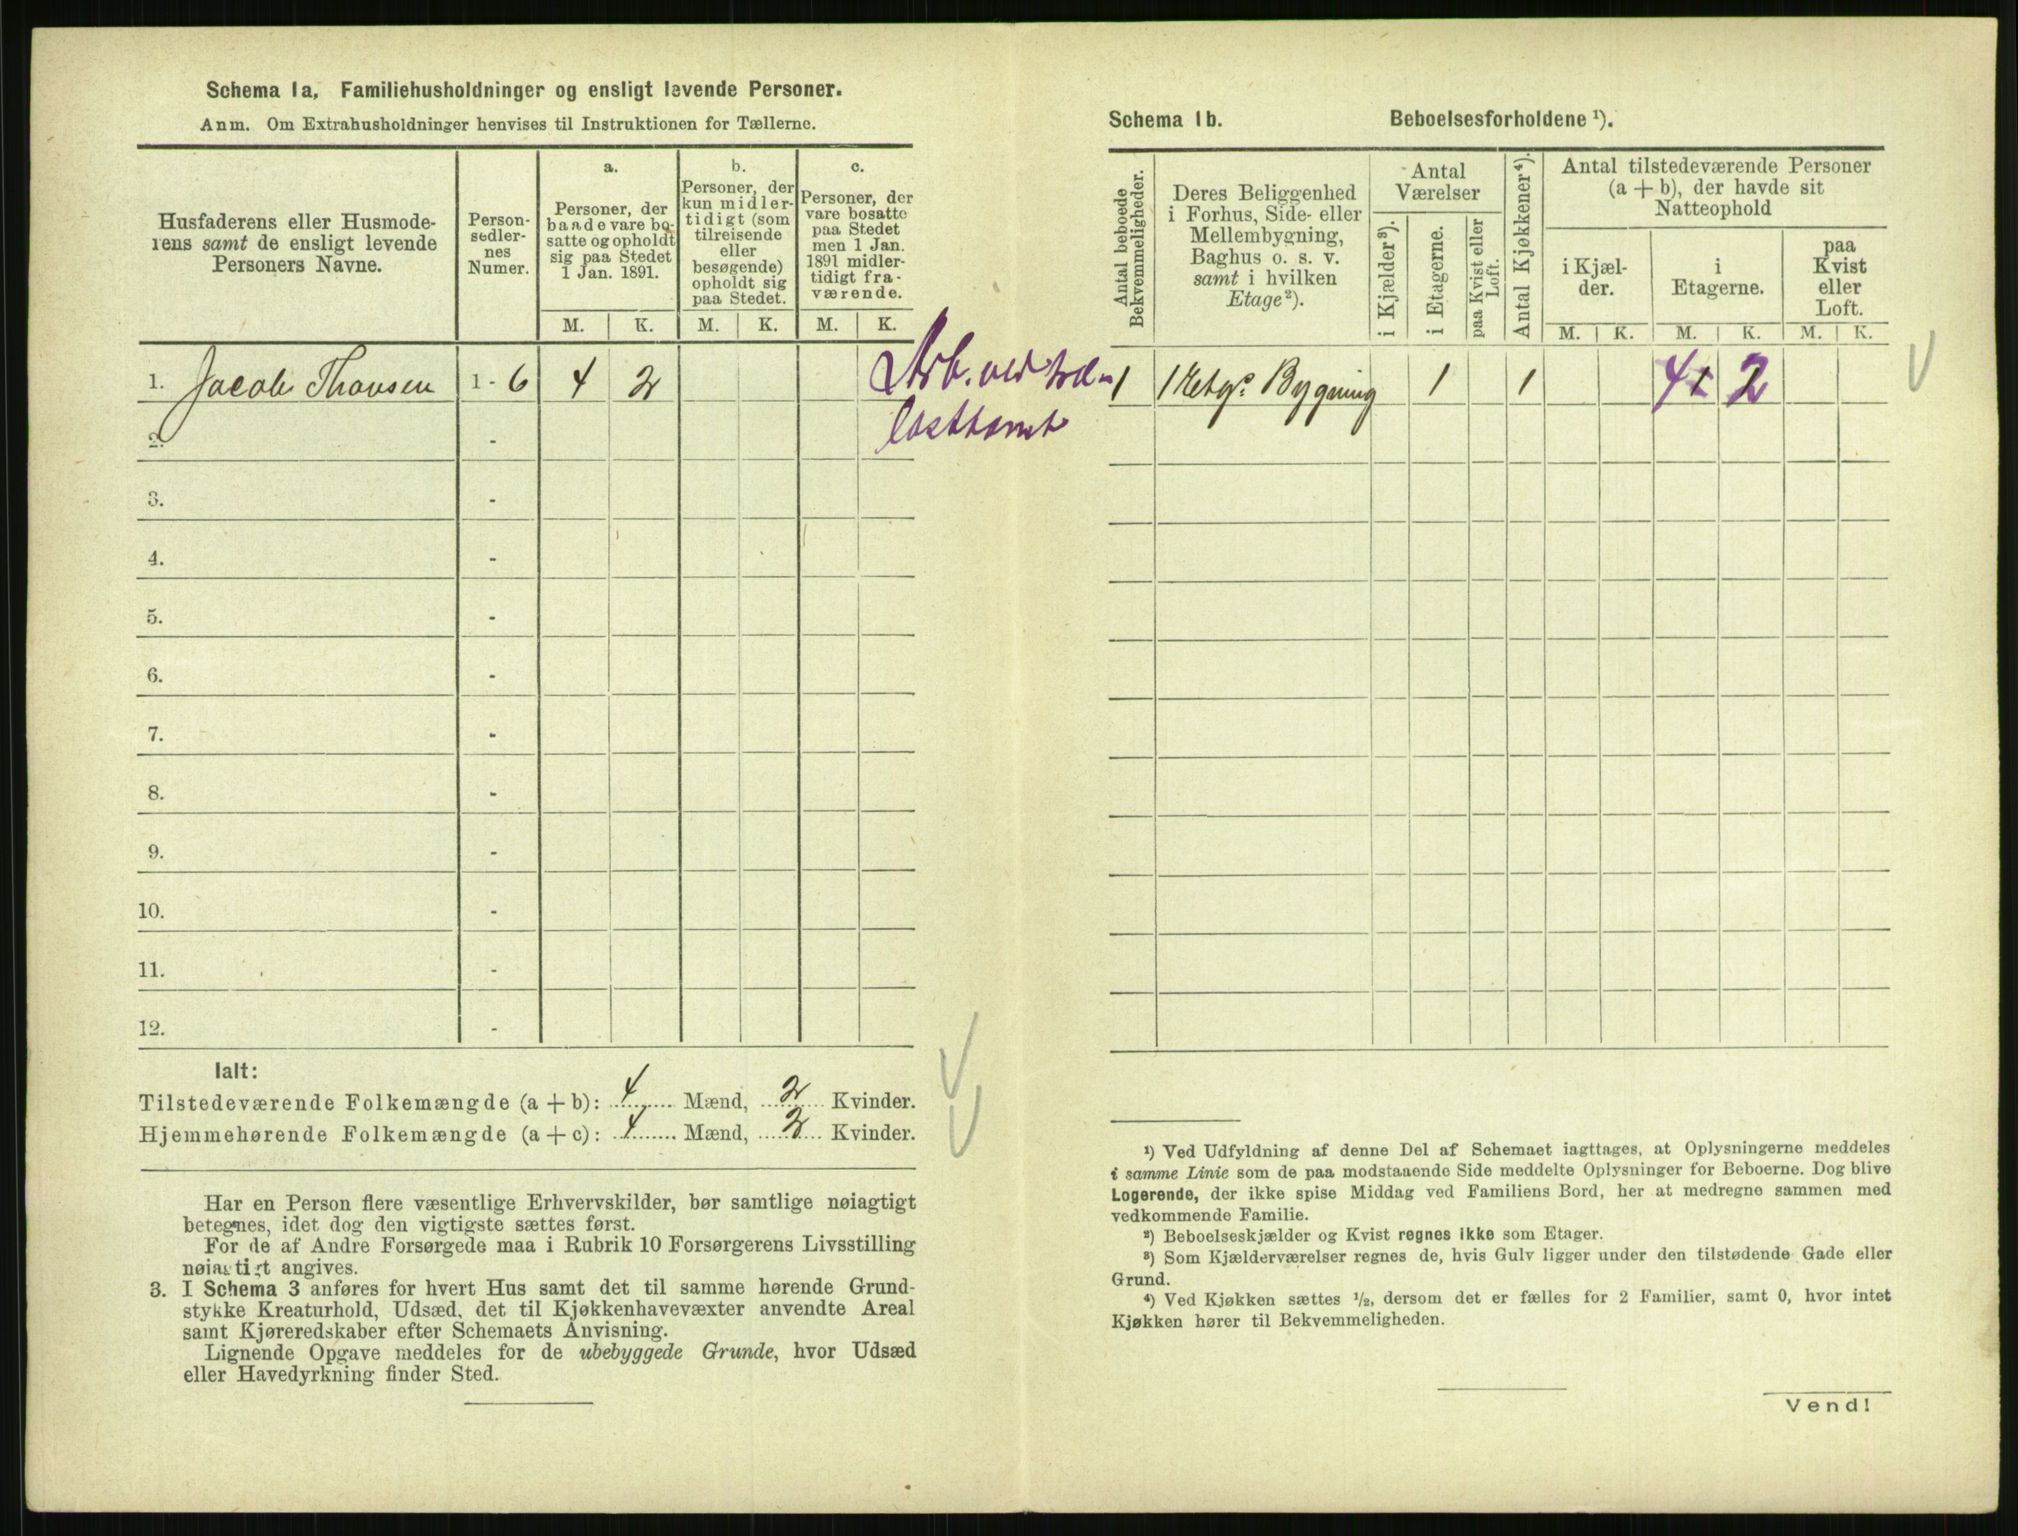 Schema 1a. Familiehusholdninger og ensligt levende Personer.
Anm. Om Extrahusholdninger henvises til Instruktionen for Tællerne.
Husfaderens eller Husmode-
rens samt de ensligt levende
Personers Navne.
Person-
sedler-
nes
Numer.
a.
Personer, der
baade vare bo-
satte og opholdt
sig paa Stedet
1 Jan. 1891.
b.
Personer, der
kun midler-
tidigt (som
tilreisende
eller
besøgende)
opholdt sig
paa Stedet.
c.
Personer, der
vare bosatte
paa Stedet
men 1 Jan.
1891 midler-
tidigt fra-
værende.
M. K. M. K. M. K.
1. Jacob Thovsen 1 - 6 4 2 Arb. ved træ-
2. - lasttomt
3. -
4. -
5. -
6. -
7. -
8. -
9. -
10. -
11. -
12. -
Ialt:
Tilstedeværende Folkemængde (a + b): 4 Mænd, 2 Kvinder.
Hjemmehørende Folkemængde (a + c): 4 Mænd, 2 Kvinder.
Har en Person flere væsentlige Erhvervskilder, bør samtlige nøiagtigt
betegnes, idet dog den vigtigste sættes først.
For de af Andre Forsørgede maa i Rubrik 10 Forsørgerens Livsstilling
nøiagtigt angives.
3. I Schema 3 anføres for hvert Hus samt det til samme hørende Grund-
stykke Kreaturhold, Udsæd, det til Kjøkkenhavevæxter anvendte Areal
samt Kjøreredskaber efter Schemaets Anvisning.
Lignende Opgave meddeles for de ubebyggede Grunde, hvor Udsæd
eller Havedyrkning finder Sted.
Schema 1b. Beboelsesforholdene ¹).
Antal beboede
Bekvemmeligheder.
Deres Beliggenhed
i Forhus, Side- eller
Mellembygning,
Baghus o. s. v.
samt i hvilken
Etage²).
Antal
Værelser
i Kjælder³).
i Etagerne.
paa Kvist eller
Loft.
Antal Kjøkkener⁴).
Antal tilstedeværende Personer
(a + b), der havde sit
Natteophold
i Kjæl-
der.
i
Etagerne.
paa
Kvist
eller
Loft.
M. K. M. K. M. K.
1 1 Etgs Bygning 1 1 4 2
¹) Ved Udfyldning af denne Del af Schemaet iagttages, at Oplysningerne meddeles
i samme Linie som de paa modstaaende Side meddelte Oplysninger for Beboerne. Dog blive
Logerende, der ikke spise Middag ved Familiens Bord, her at medregne sammen med
vedkommende Familie.
²) Beboelseskjælder og Kvist regnes ikke som Etager.
³) Som Kjælderværelser regnes de, hvis Gulv ligger under den tilstødende Gade eller
Grund.
⁴) Ved Kjøkken sættes ½, dersom det er fælles for 2 Familier, samt 0, hvor intet
Kjøkken hører til Bekvemmeligheden.
Vend!